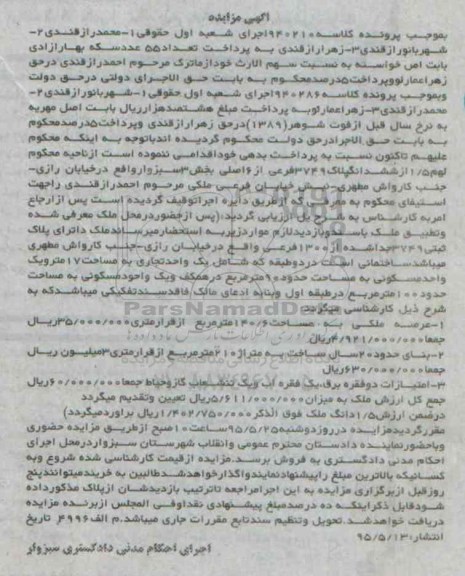 آگهی مزایده
بموجب پرونده کلاسه ۹۴۰۲۱۰ اجرای شعبه اول حقوقی ۱-محمدرازقندی ۲-
شهربانورازقندی ۳-زهرارازقندی به پرداخت تعداد ۵۵ عددسکه بهارآزادی
بابت اص خواسته به نسبت سهم الارث خودازماترک مرحوم احمدرازقندی درحق
زهراعمارلووپرداخت ۵درصدمحکوم به بابت حق الاجرای دولتی درحق دولت
وبموجب پرونده کلاسه ۹۴۰۲۸۶ اجرای شعبه اول حقوقی ۱-شهربانورازقندی ۲-
محمدرازقندی ۳-زهراعمارلوبه پرداخت مبلغ هشتصدهزارریال بابت اصل مهریه
به نرخ سال قبل ازفوت شوهر(۱۳۸۹)درحق زهرارازقندی وپرداخت ۵درصدمحکوم
به بابت حق الاجرادرحق دولت محکوم گردیده اندباتوجه به اینکه محکوم
علیهم تاکنون نسبت به پرداخت بدهی خوداقدامی ننموده است ازناحیه محکوم
لهم ۱/۵ازششدانگ پلاک ۳۷۴۹فرعی از ۶اصلی بخش ۳سبزوارواقع درخیابان رازی-
جنب کارواش مطهری-نبش خیابان فرعی ملکی مرحوم احمدرازقندی راجهت
استیفای محکوم به معرفی که ازطریق دایره اجراتوقیف گردیده است پس ازارجاع
امربه کارشناس به شرح ذیل ارزیابی گردید:(پس ازحضوردرمحل ملک معرفی شده
وتطبیق ملک باسندوبازدیدلازم مواردزیربه استحضارمیرساندملک دارای پلاک
ثبتی ۳۷۴۹جداشده از ۱۳۰۰فرعی واقع درخیابان رازی-جنب کارواش مطهری
میباشدساختمانی است دردوطبقه که شامل یک واحدتجاری به مساحت ۱۷مترویک
واحدمسکونی به مساحت حدود ۹۰مترمربع درهمکف ویک واحدمسکونی به مساحت
حدود ۱۰۰مترمربع درطبقه اول وبنابه ادعای مالک فاقدسندتفکیکی میباشدکه به
شرح ذیل کارشناسی میگردد
۱-عرصه ملکی به مساحت ۱۴۰/۶مترمربع ازقرارمتری ۳۵/۰۰۰/۰۰۰ریال
جمعا ۴/۹۲۱/۰۰۰/۰۰۰ریال
۲-بنای حدود ۲۰سال ساخت به متراژ ۲۱۰مترمربع ازقرارمتری ۳میلیون ریال
جمعا ۶۳۰/۰۰۰/۰۰۰ریال
۳-امتیازات دوفقره برق،یک فقره آب ویک انشعاب گازوحیاط جمعا ۶۰/۰۰۰/۰۰۰ریال
جمع کل ارزش ملک به میزان ۵/۶۱۱/۰۰۰/۰۰۰ریال تعیین وتقدیم میگردد
درضمن ارزش ۱/۵دانگ ملک فوق الذکر ۱/۴۰۲/۷۵۰/۰۰۰ریال برآوردمیگردد)
مقررگردیدمزایده درروزدوشنبه ۹۵/۵/۲۵ساعت ۱۰صبح ازطریق مزایده حضوری
وباحضورنماینده دادستان محترم عمومی وانقلاب شهرستان سبزواردرمحل اجرای
احکام مدنی دادگستری به فروش برسد.مزایده ازقیمت کارشناسی شده شروع وبه
کسانیکه بالاترین مبلغ راپیشنهادنمایندواگذارخواهدشدطالبین به خریدمیتوانندپنج
روزقبل ازبرگزاری مزایده به این اجرامراجعه تاترتیب بازدیدشان ازپلاک مذکورداده
شودقابل ذکراینکه ده درصدمبلغ پیشنهادی نقداوفی المجلس ازبرنده مزایده
دریافت خواهدشد.تحویل وتنظیم سندتابع مقررات جاری میباشد.م الف ۴۹۹۶ تاریخ
انتشار:۹۵/۵/۱۳
اجرای احکام مدنی دادگستری سبزوار
ParsNamadData